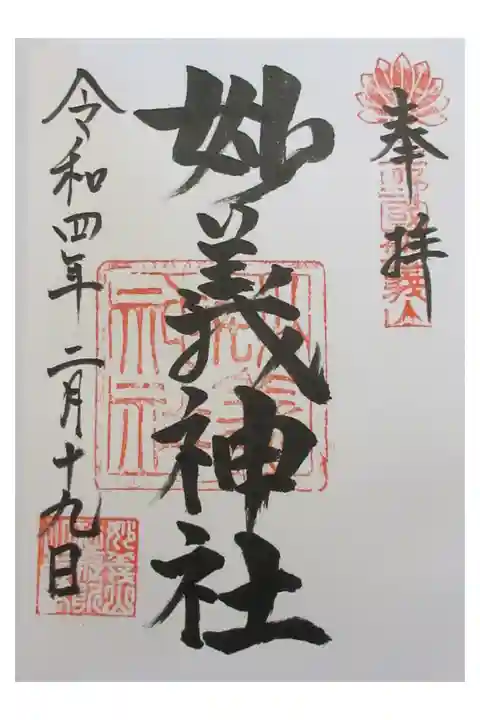 奉拝
妙義神社
令和四年二月十九日